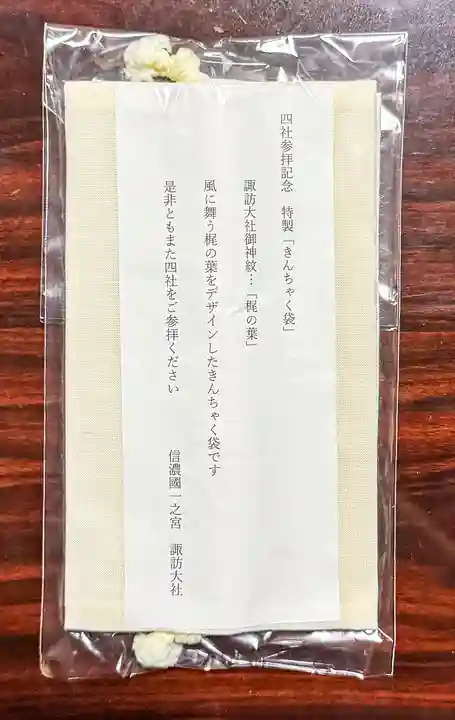 四社参拝記念　特製「きんちゃく袋」
諏訪大社御神紋…「梶の葉」
風に舞う梶の葉をデザインしたきんちゃく袋です
是非ともまた四社をご参拝ください
信濃國一之宮　諏訪大社